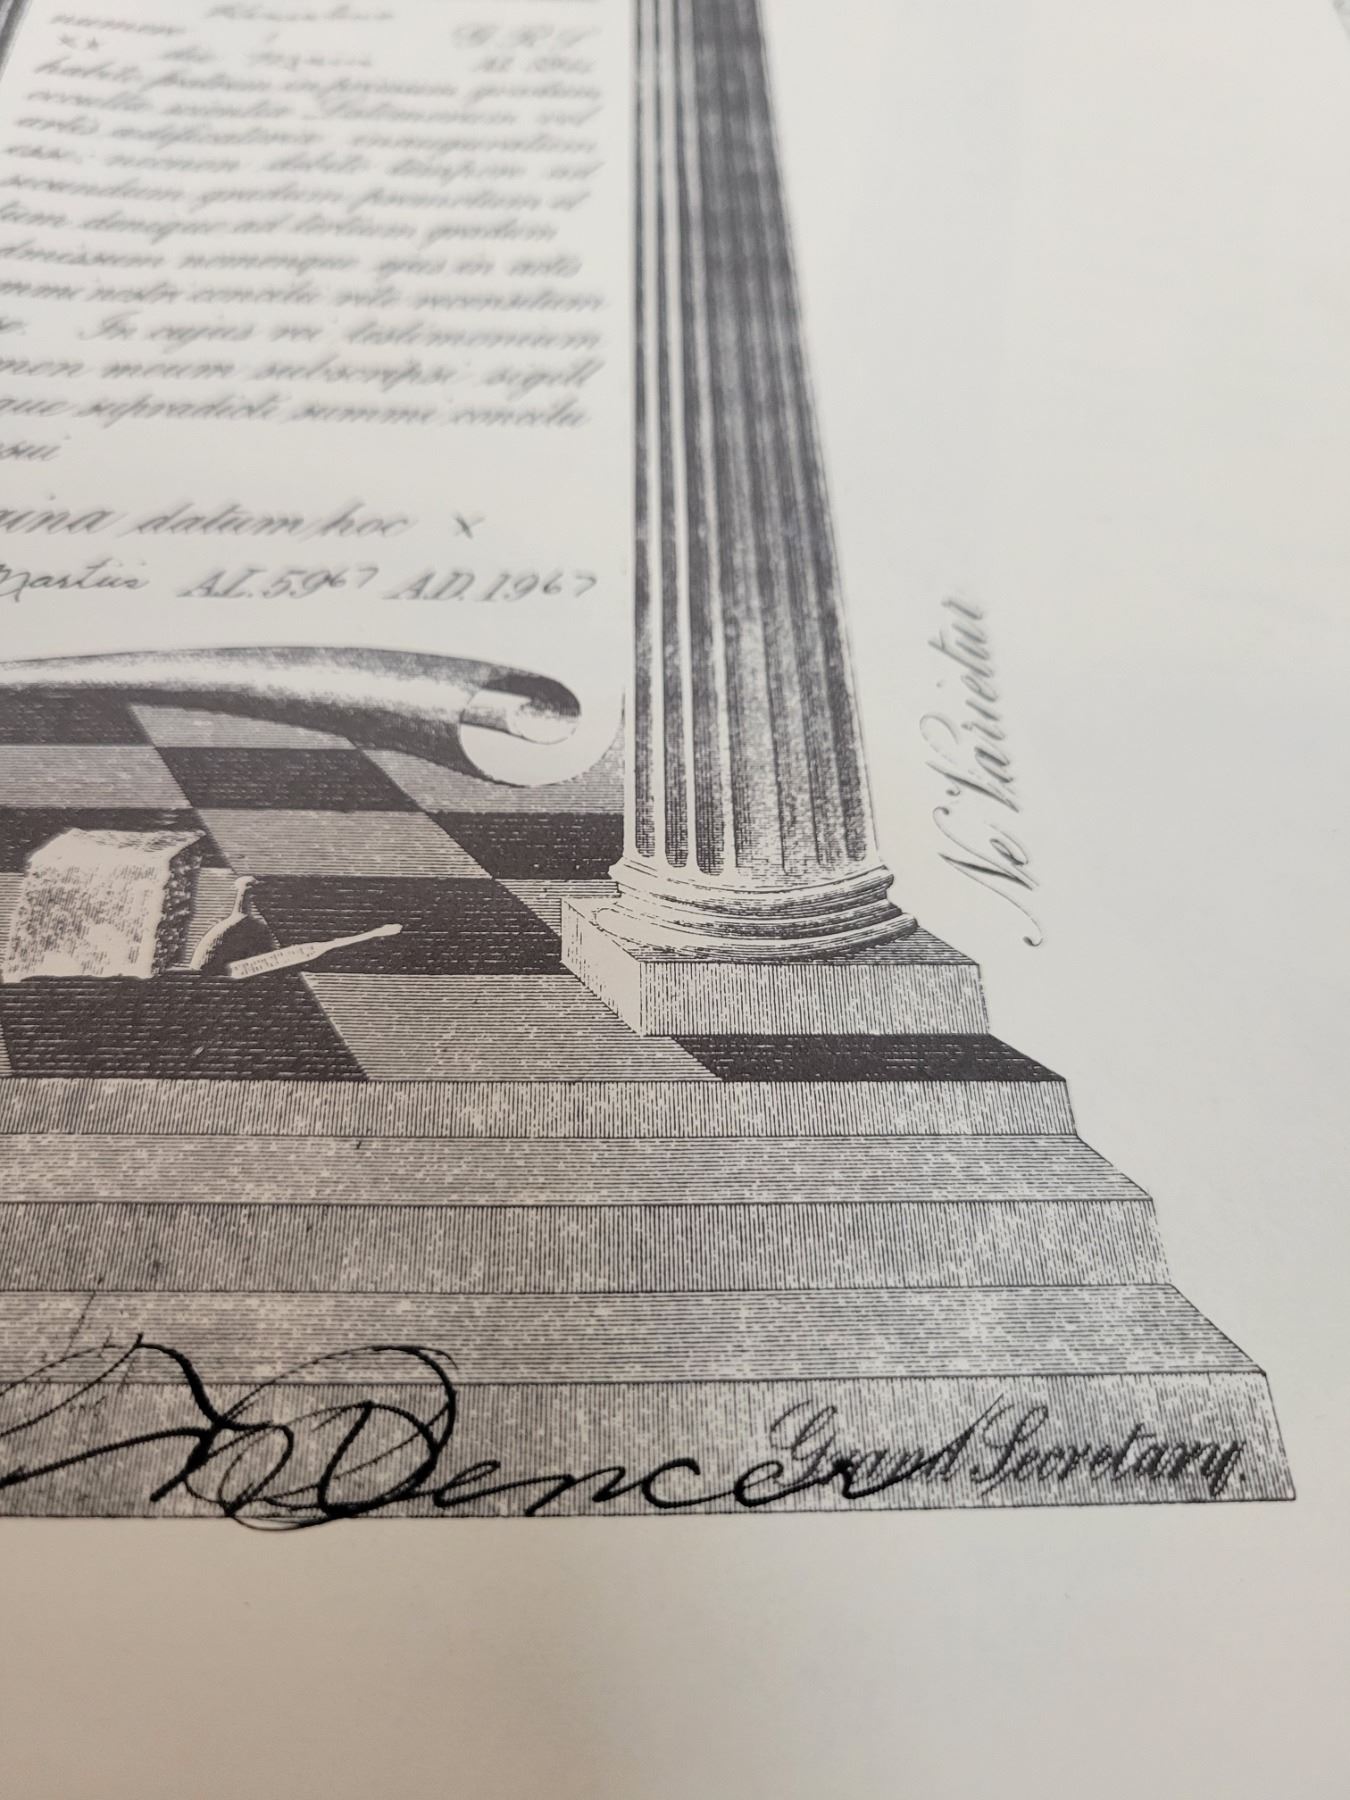 numen
xx die
habito probum in primum gradum
occultæ scientiæ Latomorum vel
artis ædificatoriæ inauguratum
esse; necnon debito tempore ad
secundum gradum promotum et
tum denique ad tertium gradum
dmissum nomenque ejus in actis
mmi nostri concilii rite recensitum
In cujus rei testimonium
men meum subscripsi sigill
que supradicti summi concilii
sui
gina datum hoc x
Martiis A.L. 5967 A.D. 1967
Ne Varietur
Grand Secretary.